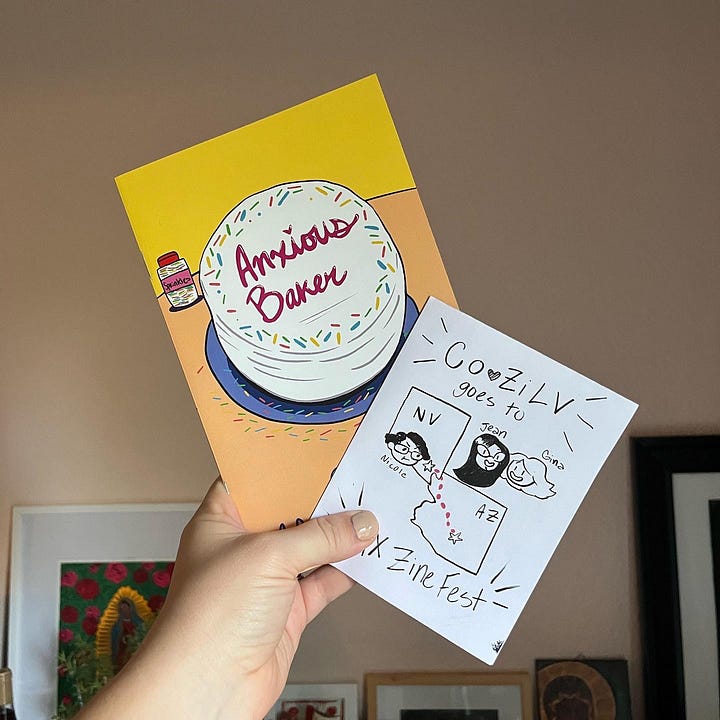 Anxious
Baker
Sprinkles
Co♥ZiLV
goes to
NV
Jean
Gina
Nicole
AZ
Zine Fest